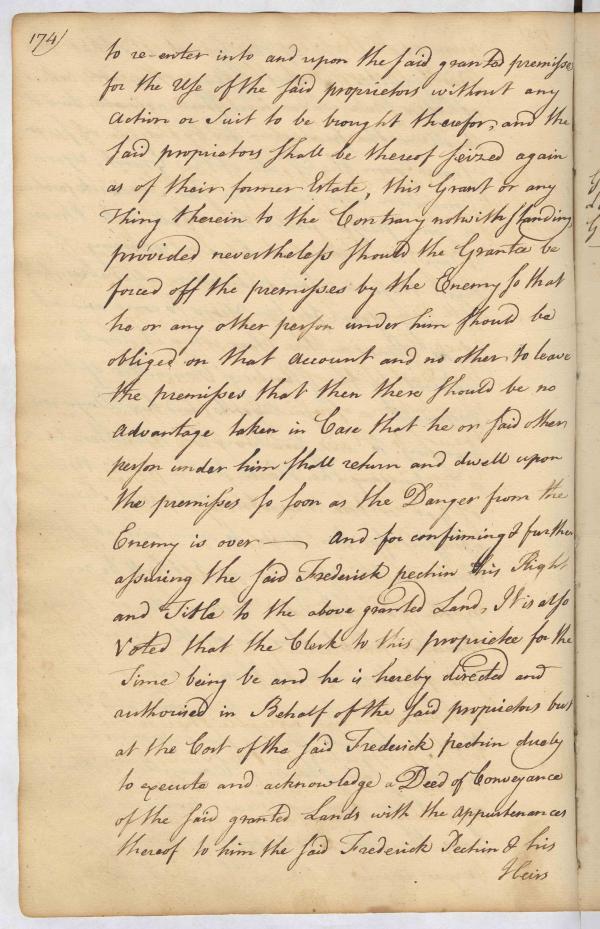 174)
to re-enter into and upon the said granted premisses
for the Use of the said proprietors without any
Action or Suit to be brought therefor, and the
said proprietors shall be thereof seized again
as of their former Estate, this Grant or any
Thing therein to the Contrary notwithstanding
provided nevertheless should the Grantee be
forced off the premisses by the Enemy so that
he or any other person under him should be
obliged on that account and no other to leave
the premisses that then there should be no
advantage taken in Case that he or said other
person under him shall return and dwell upon
the premisses so soon as the Danger from the
Enemy is over — And for confirming & further
assuring the said Frederick pechin his Right
and Title to the above granted Land, It is also
Voted that the Clerk to this proprietee for the
Time being be and he is hereby directed and
authorised in Behalf of the said proprietors but
at the Cost of the said Frederick pechin duely
to execute and acknowledge a Deed of Conveyance
of the said granted Lands with the appurtenances
thereof to him the said Frederick Pechin & his
Heirs